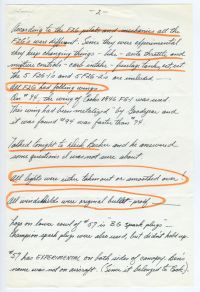 - 2 -
According to the F2G pilots and mechanics all the
F2G's were different. Since they were experimental
they kept changing things - like - auto throttle and
mixture controls - carb intake - fuselage tanks, set, ect
The 5 F2G-1's and 5 F2G-2's are
All F2G had folding wings
On # 94, the wing of Cook's 1946 FG-1 was used.
This wing had been by Goodyear and
it was found #94 was faster than #74
Talked tonight to Becker and he answered
some questions I was not sure about.
All lights were either taken out or smoothed over!
All windshields were original bullet-proof
Logo on lower cowl of #57 is "BG spark plugs"
Champion spark plugs were also used, but didn't hold up.
#57 has EXPERIMENTAL on both sides of canopy.
name was not on aircraft. (Since it belonged to Cook).